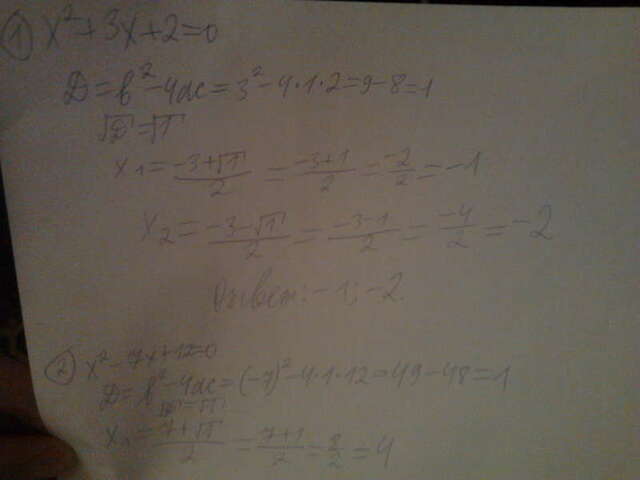 ① x²+3x+2=0
D=b²-4ac=3²-4·1·2=9-8=1
√D=√1
x₁=(-3+√1)/2=(-3+1)/2=-2/2=-1
x₂=(-3-√1)/2=(-3-1)/2=-4/2=-2
Ответ: -1; -2.
② x²-7x+12=0
D=b²-4ac=(-7)²-4·1·12=49-48=1
√D=√1
x₁=(7+√1)/2=(7+1)/2=8/2=4